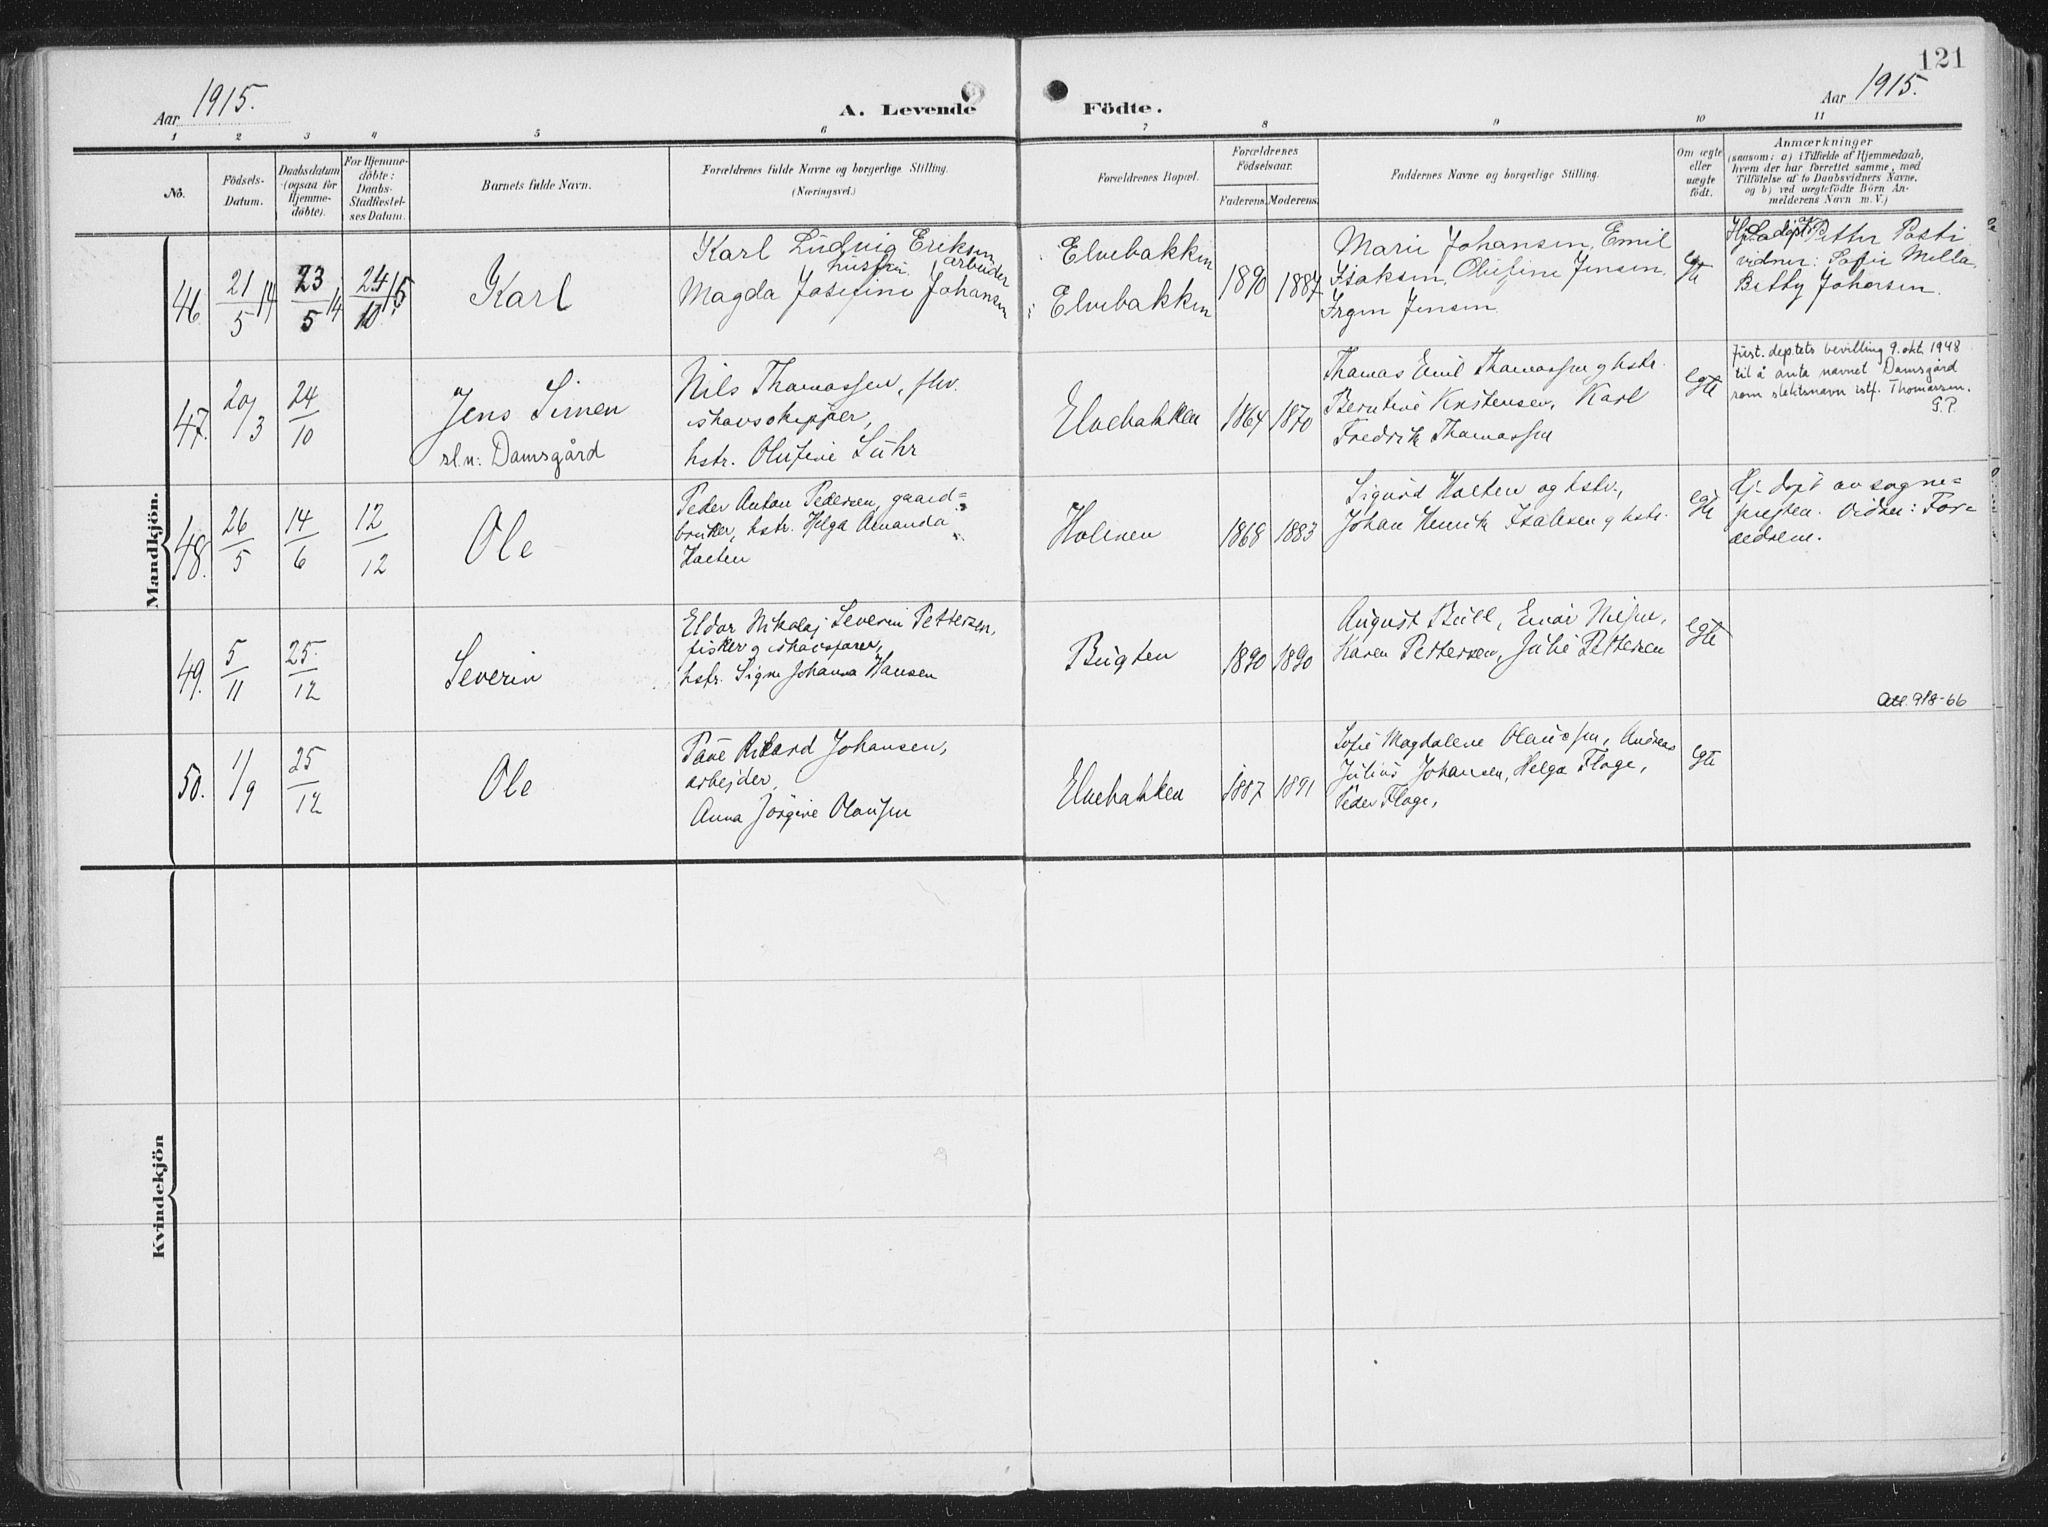 121
Aar 1915.
A. Levende Födte.
Aar 1915.
1 2 3 4 5 6 7 8 9 10 11
No.
Födsels-
Datum.
Daabsdatum
(ogsaa for
Hjemme-
döbte).
For Hjemme-
döbte:
Daabs-
Stadfæstel-
ses Datum.
Barnets fulde Navn.
Forældrenes fulde Navne og borgerlige Stilling.
(Næringsvei.)
Forældrenes Bopæl.
Forældrenes
Födselsaar.
Faderens. Moderens.
Faddernes Navne og borgerlige Stilling.
Om ægte
eller
uægte
födt.
Anmærkninger
(saasom: a) i Tilfælde af Hjemmedaab,
hvem der har forrettet samme, med
Tilföielse af to Daabsvidners Navne,
og b) ved uægtefödte Börn An-
melderens Navn m. V.)
Mandkjön.
46.
21/5 14
23/5 14
24/10 15
Karl
Karl Ludvig Eriksen
arbeider
hustru
Magda Josefine Johansen
Elvebakken
Elvebakken
1890 1887
Marie Johansen, Emil
Isaksen, Olufine Jensen,
Jensen
egte
Petter Posti
vidner: Sofie Mella
Betby Johansen.
47.
20/3
24/10
Jens Simen
sl.n: Damsgård
Nils Thomassen, fhv.
ishavsskipper,
hstr. Olufine Suhr
Elvebakken
1864 1870
Thomas Emil Thomassen og hstr.
Berntine Kristensen, Karl
Fredrik Thomassen
egte
Just.dep.tets bevilling 9. okt. 1948
til å anta navnet Damsgård
som slektsnavn istf. Thomassen.
48.
26/5
14/6
12/12
Ole
Peder Anton Pedersen, gaard-
bruker, hstr. Helga Amanda
Haeten
Holmen
1868 1883
Sigurd Haeten og hstr.,
Johan Henrik Isaksen og hstr.
egte
Hj. døpt av sogne-
presten. Vidner: For-
ældrene.
49.
5/11
25/12
Severin
Eldor Nikolaj Severin Pettersen,
fisker og ishavsfarer,
hstr. Signe Johanna Hansen
Bugten
1890 1890
August Bull, Einar Nilsen,
Karen Pettersen, Julie Pettersen
egte
Att. 9/8-66
50.
1/9
25/12
Ole
Paul Rikard Johansen,
arbejder,
Anna Jörgine Olausen
Elvebakken
1887 1891
Sofie Magdalene Olaussen, Andreas
Julius Johansen, Helga Flage,
Peder Flage,
egte
Kvindekjön